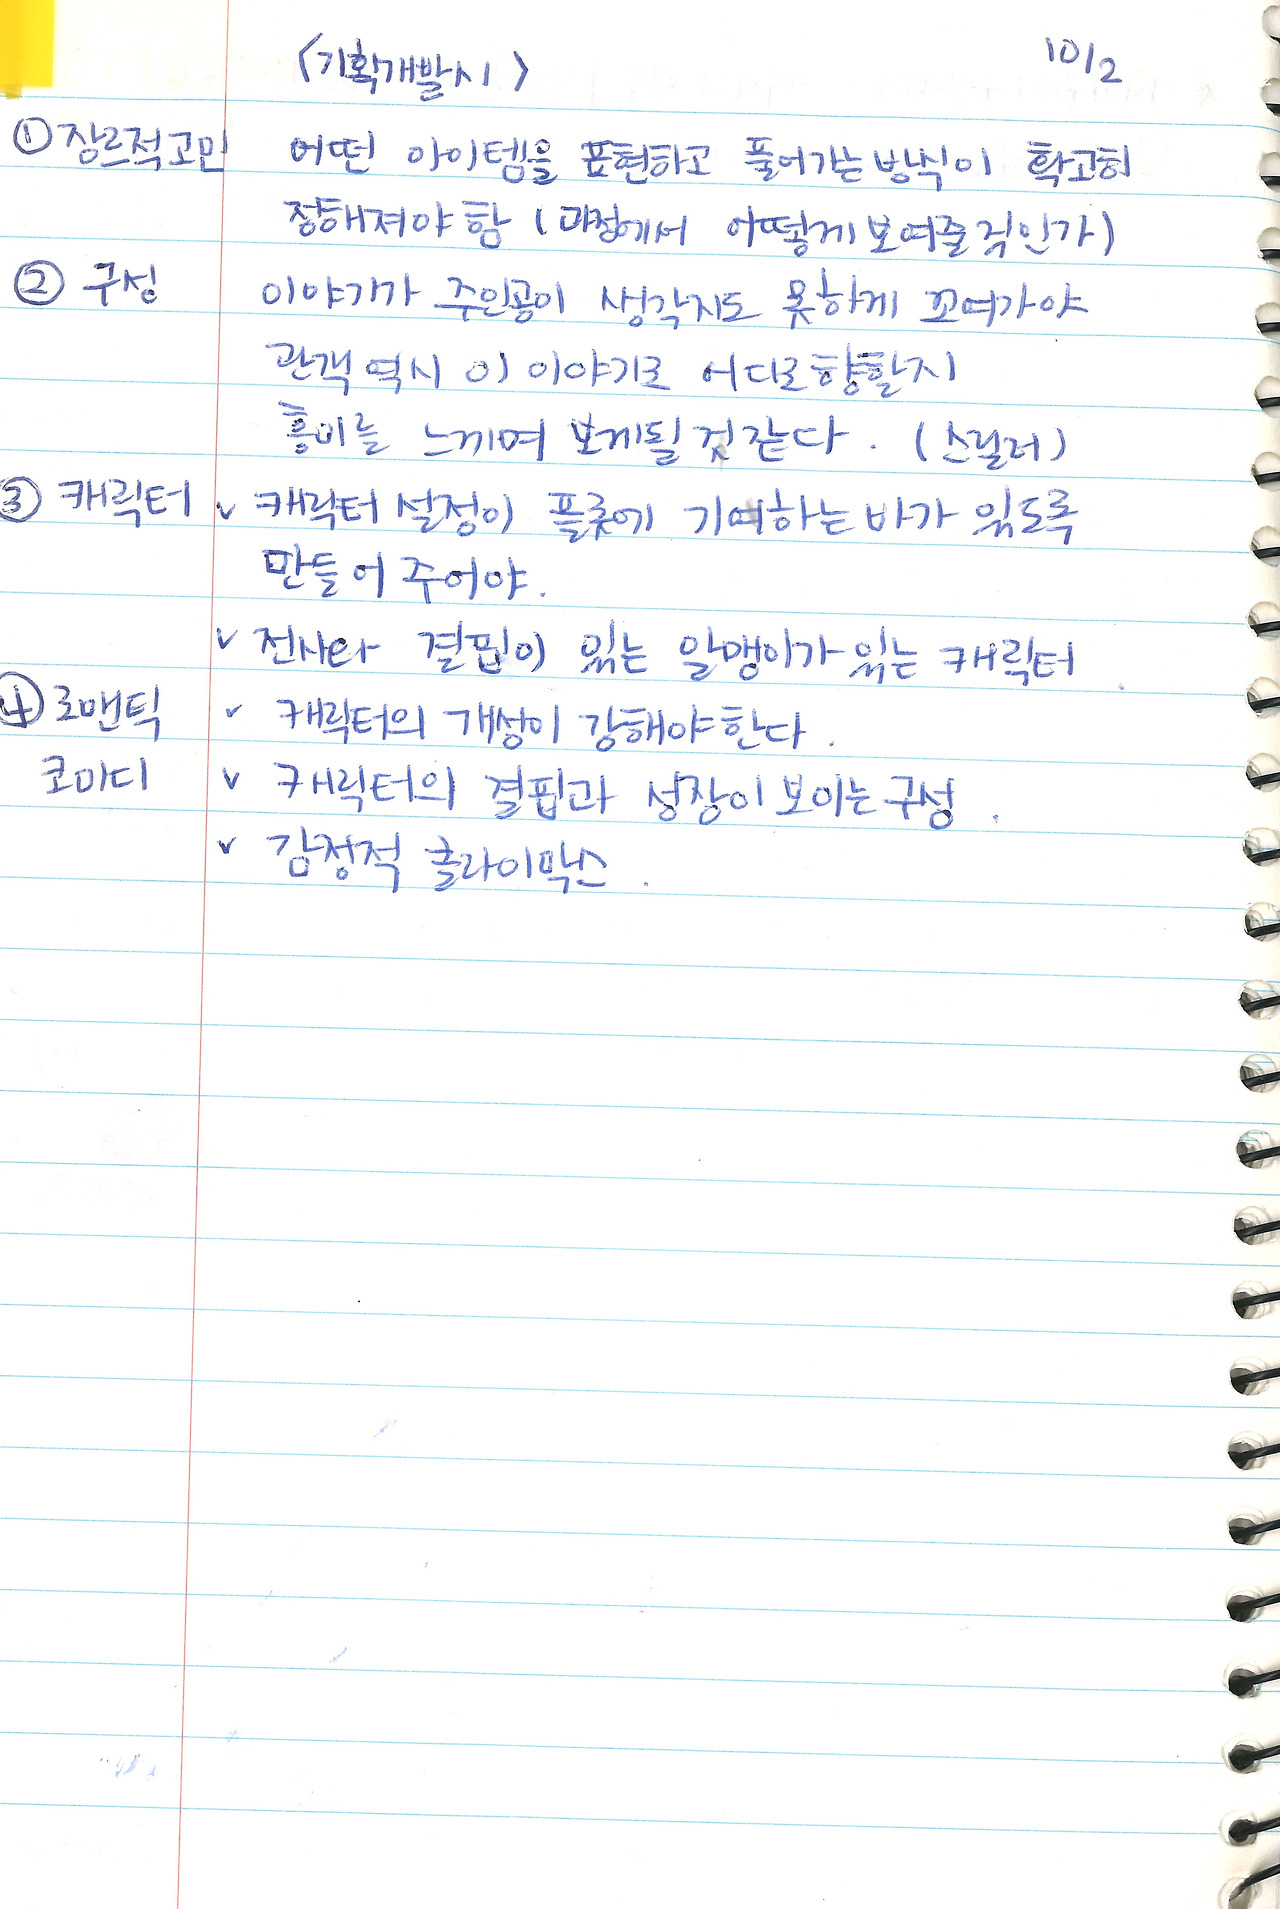 <기획개발시>
10/2
① 장르적고민 어떤 아이템을 표현하고 풀어가는 방식이 확고히
정해져야 함 (과정에서 어떻게 보여줄 것인가)
② 구성 이야기가 주인공이 생각지도 못하게 꼬여가야
관객 역시 이 이야기로 어디로 향할지
흥미를 느끼며 보게될 것 같다. (스릴러)
③ 캐릭터 v 캐릭터 설정이 플롯에 기여하는 바가 있도록
만들어 주어야.
v 전사와 결핍이 있는 알맹이가 있는 캐릭터
④ 로맨틱 v 캐릭터의 개성이 강해야 한다.
코미디 v 캐릭터의 결핍과 성장이 보이는 구성.
v 감정적 클라이막스.